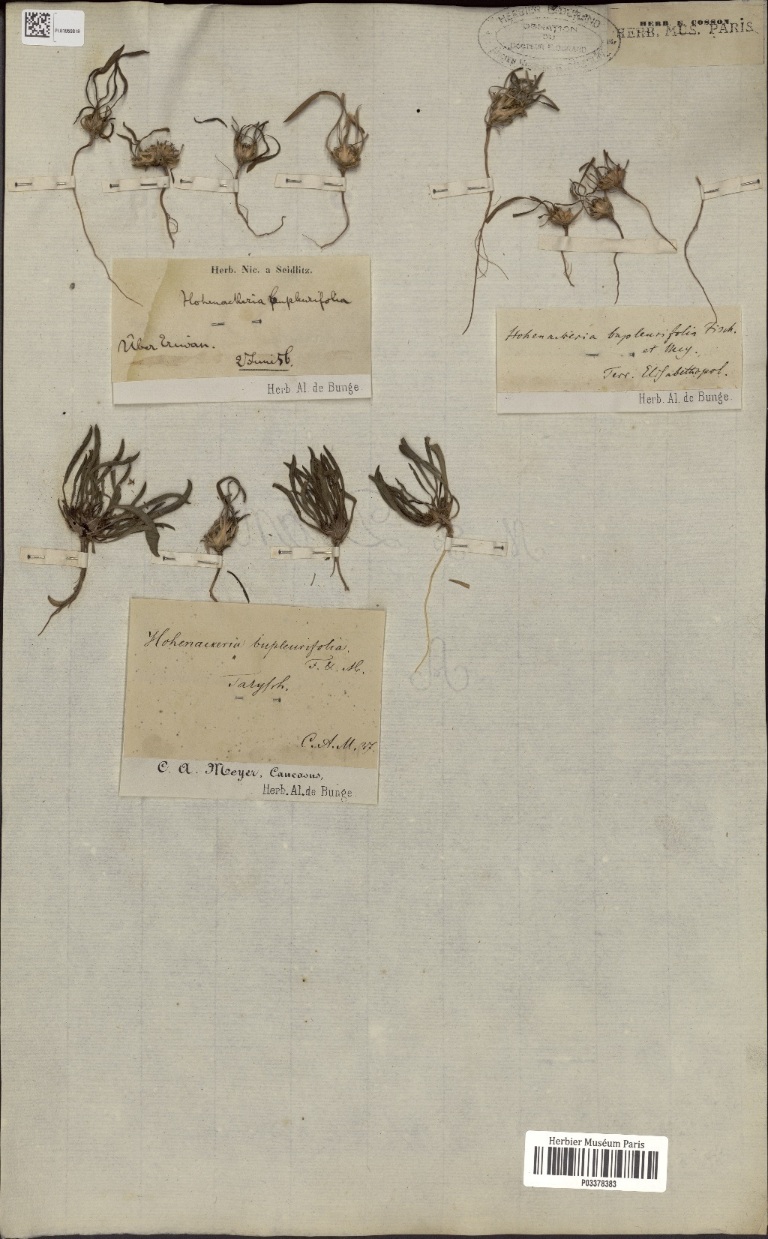 HERBIER E. DURAND
DONATION
DU
DOCTEUR E. DURAND
HERB. E. COSSON
HERB. MUS. PARIS.
Herb. Nic. a Seidlitz.
Hohenackeria bupleurifolia
Über Eriwan.
2 Juni 56.
Herb. Al. de Bunge
Hohenackeria bupleurifolia Fisch.
et Mey.
Terr. Elisabethpol.
Herb. Al. de Bunge.
Hohenackeria bupleurifolia.
F. & M.
Talysch.
C. A. M. 37.
C. A. Meyer, Caucasus,
Herb. Al. de Bunge
Herbier Muséum Paris
P03378383